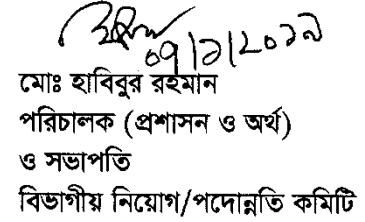 ০৭/১/২০১৯
মোঃ হাবিবুর রহমান
পরিচালক (প্রশাসন ও অর্থ)
ও সভাপতি
বিভাগীয় নিয়োগ/পদোন্নতি কমিটি